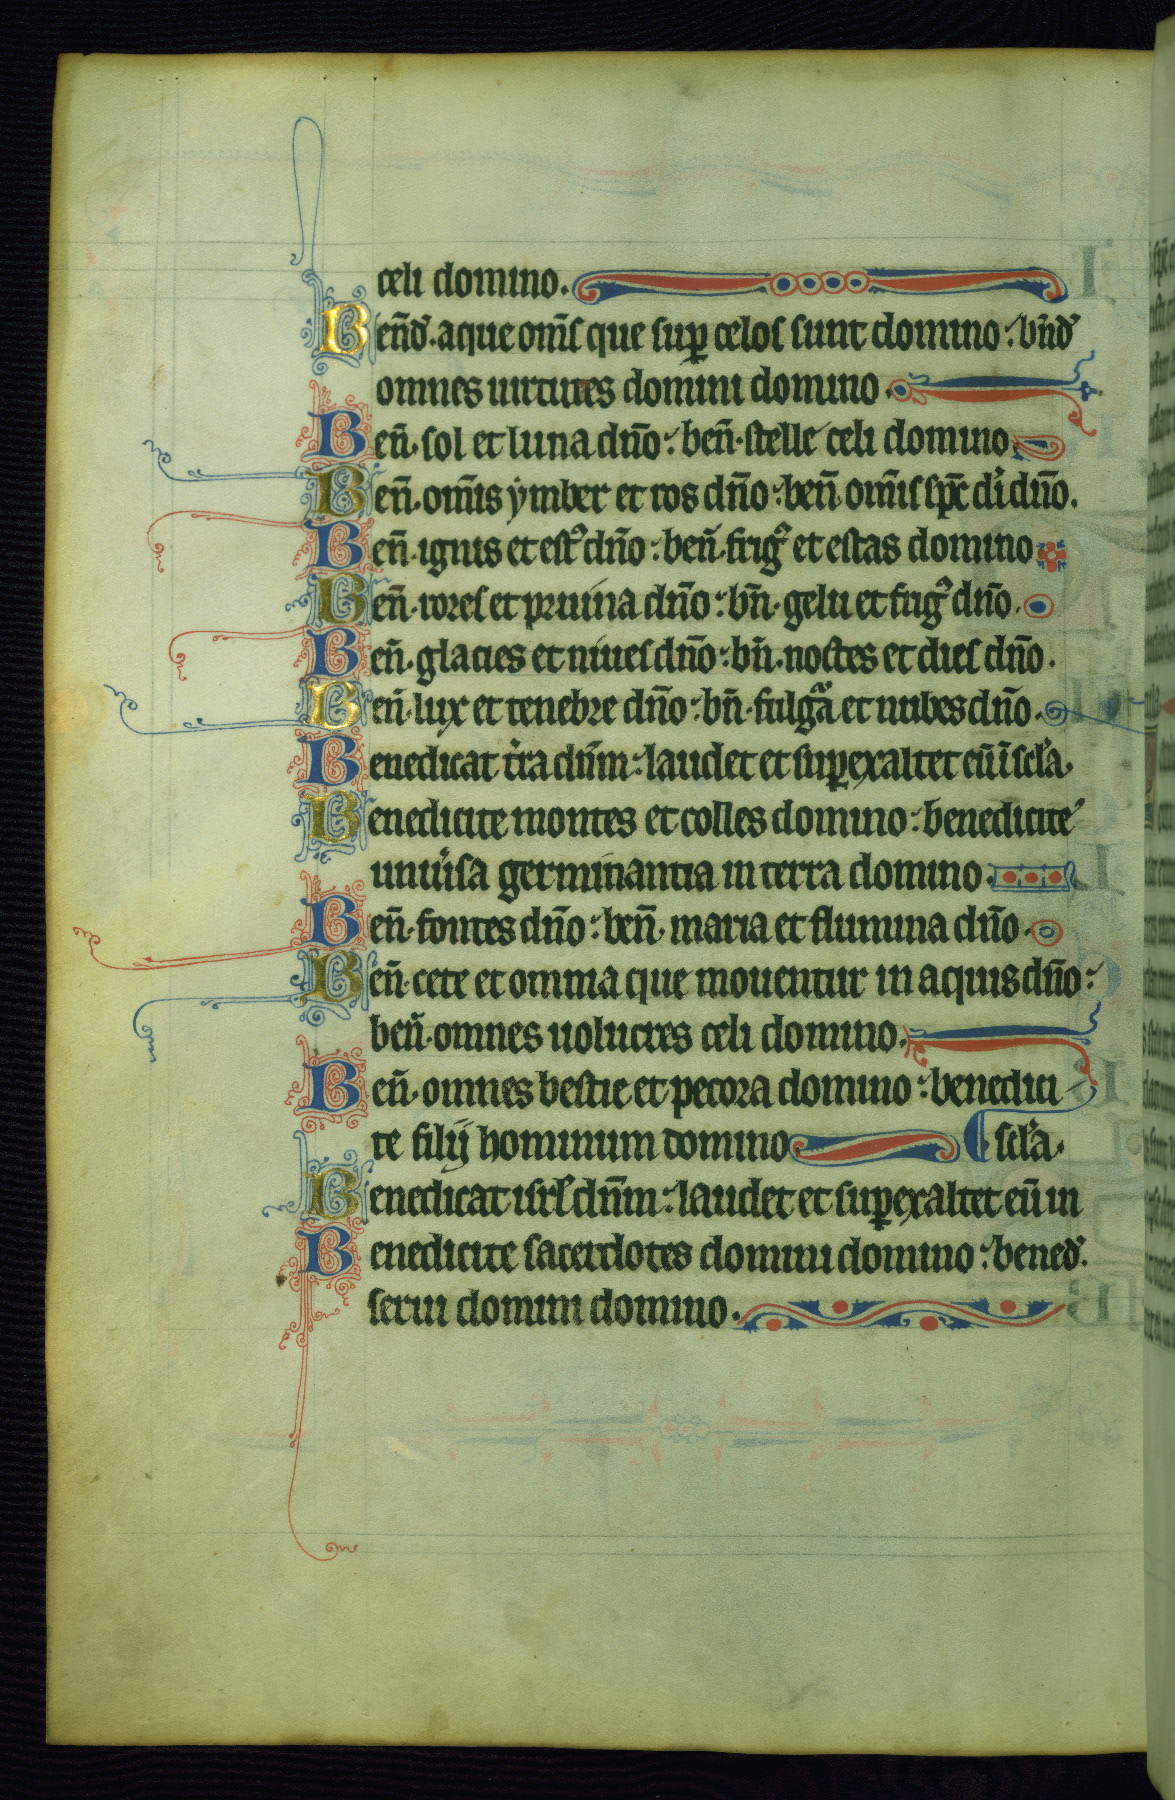 celi domino.
Ben̄d̕. aque om̄s que suꝑ celos sunt domino: bn̄d̕
omnes uirtutes domini domino.
Ben̄. sol et luna dn̄o: ben̄. stelle celi domino
Ben̄. om̄is ymber et ros dn̄o: ben̄. om̄is sp̄c di dn̄o.
Ben̄. ignis et est᷒ dn̄o: ben̄. frig᷒ et estas domino
Ben̄. rores et pruina dn̄o: bn̄. gelu et frig᷒ dn̄o.
Ben̄. glacies et niues dn̄o: bn̄. noctes et dies dn̄o.
Ben̄. lux et tenebre dn̄o: bn̄. fulgᷓa et nubes dn̄o.
Benedicat t̕ra dn̄m: laudet et suꝑexaltet eū ī scl̕a.
Benedicite montes et colles domino: benedicite
uniu̕sa germinantia in terra domino.
Ben̄. fontes dn̄o: ben̄. maria et flumina dn̄o.
Ben̄. cete et omnia que mouentur in aquis dn̄o:
ben̄. omnes uolucres celi domino.
Ben̄. omnes bestie et pecora domino: benedici
te filij hominum domino scl̕a.
Benedicat isrl̕ dn̄m: laudet et suꝑexaltet eū in
Benedicite sacerdotes domini domino: bened̕.
serui domini domino.